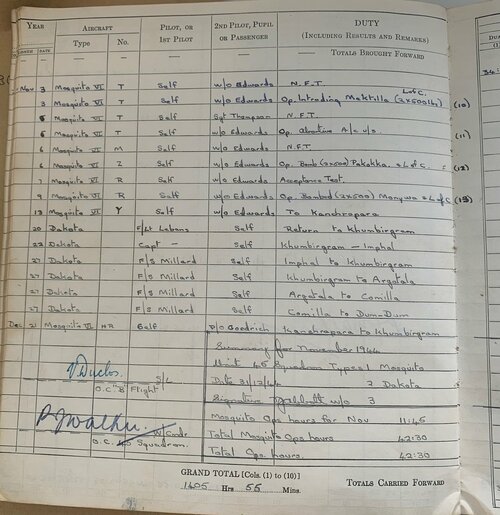 YEAR AIRCRAFT PILOT, OR 1ST PILOT 2ND PILOT, PUPIL OR PASSENGER DUTY (INCLUDING RESULTS AND REMARKS)
MONTH DATE Type No. — — — TOTALS BROUGHT FORWARD
Nov 3 Mosquito VI T Self w/o Edwards N.F.T.
3 Mosquito VI T Self w/o Edwards Op. Intruding Maktilla (2x500lb) L of C. (10)
5 Mosquito VI T Self Sgt Thompson N.F.T.
6 Mosquito VI T Self w/o Edwards Op. Abortive A/c u/s. (11)
6 Mosquito VI M Self w/o Edwards N.F.T.
6 Mosquito VI Z Self w/o Edwards Op. Bomb (2x500) Pakokku & L of C. (12)
7 Mosquito VI R Self w/o Edwards Acceptance Test.
9 Mosquito VI R Self w/o Edwards Op. Bombed (2x500) Monywa & L of C (13)
12 Mosquito VI Y Self w/o Edwards To Kanchrapara
20 Dakota F/Lt Self Return to Khumbirgram
22 Dakota Capt — Self Khumbirgram — Imphal
27 Dakota F/S Millard Self Imphal to Khumbirgram
27 Dakota F/S Millard Self Khumbirgram to Argatala
27 Dakota F/S Millard Self Argatala to Comilla
27 Dakota F/S Millard Self Comilla to Dum-Dum
Dec 21 Mosquito VI Self Goodrich Kanchrapara to Khumbirgram
Summary for November 1944
Unit 45 Squadron Types 1 Mosquito
Date 31/12/44 2 Dakota
S/L
O.C "B" Flight
Signature w/o 3
Mosquito Ops hours for Nov 11:45
W/Comdr
O.C. 45 Squadron.
Total Mosquito Ops hours 42:30
Total Ops. hours. 42:30
GRAND TOTAL [Cols. (1) to (10)]
1405 Hrs 55 Mins.
TOTALS CARRIED FORWARD